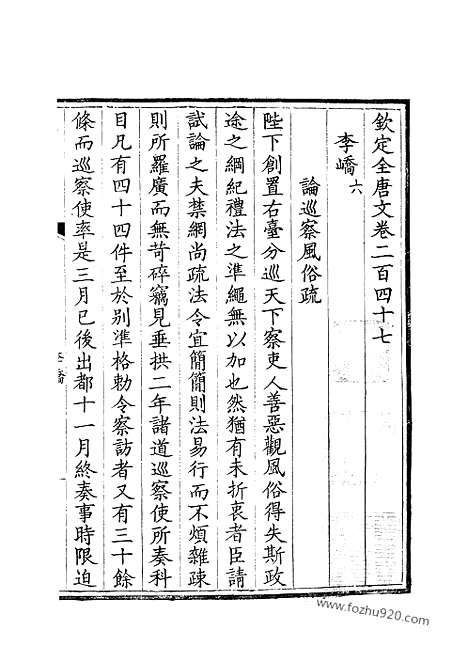 欽定全唐文卷二百四十七
李嶠六
論巡察風俗疏
陛下創置右臺分巡天下察吏人善惡觀風俗得失斯政
途之綱紀禮法之準繩無以加也然猶有未折衷者臣請
試論之夫禁網尚疏法令宜簡簡則法易行而不煩雜疎
則所羅廣而無苛碎竊見垂拱二年諸道巡察使所奏科
目凡有四十四件至於别準格勅令察訪者又有三十餘
條而巡察使率是三月已後出都十一月終奏事時限迫
www.fozhu920.com